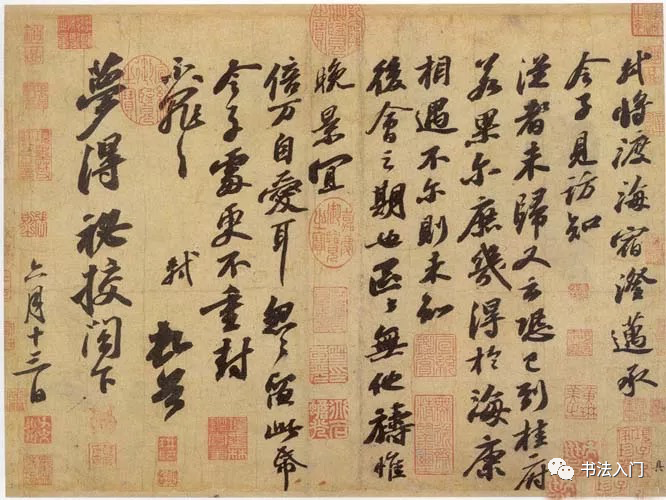 軾將渡海宿澄邁承
令子見訪知
從者未歸又云恐已到桂府
若果尔庶幾得於海康
相遇不尔則未知
後會之期也區々無他禱惟
晚景宜
倍万自愛耳忽々留此帋
令子處更不重封
不罪々 軾 頓首
夢得祕校閣下
六月十三日
书法入门